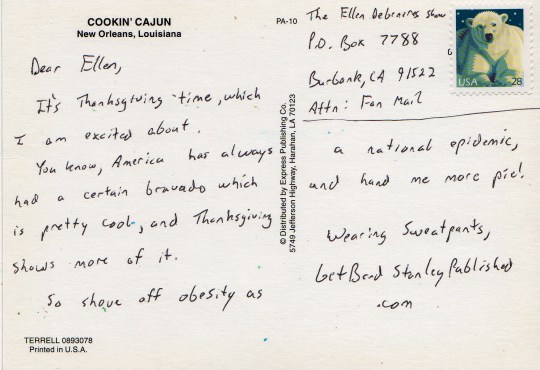 COOKIN' CAJUN
New Orleans, Louisiana
PA-10
Dear Ellen,
It's Thanksgiving time, which
I am excited about.
You know, America has always
had a certain bravado which
is pretty cool, and Thanksgiving
shows more of it.
So shove off obesity as
TERRELL 0893078
Printed in U.S.A.
© Distributed by Express Publishing Co.
5749 Jefferson Highway, Harahan, LA 70123
The Ellen Degeneres show
P.O. Box 7788
Burbank, CA 91522
Attn: Fan Mail
USA 28
a national epidemic,
and hand me more pie!
Wearing Sweatpants,
GetBend StanleyPublished
.com